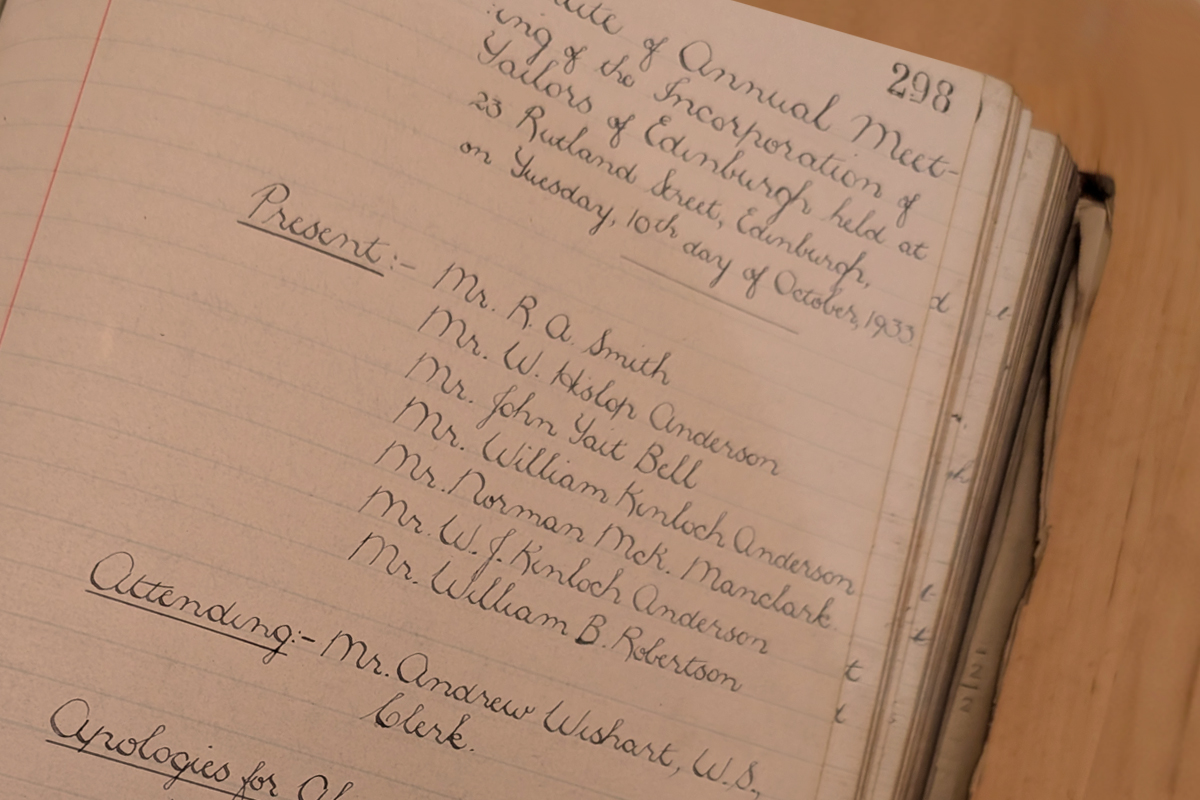 298
of Annual Meet-
:ing of the Incorporation of
Tailors of Edinburgh held at
23 Rutland Street, Edinburgh,
on Tuesday, 10th day of October, 1933
Present:- Mr. R. A. Smith
Mr. W. Hislop Anderson
Mr. John Tait Bell
Mr. William Kinloch Anderson
Mr. Norman McK. Manclark.
Mr. W. J. Kinloch Anderson
Mr. William B. Robertson
Attending:- Mr. Andrew Wishart, W.S.,
Clerk.
Apologies for